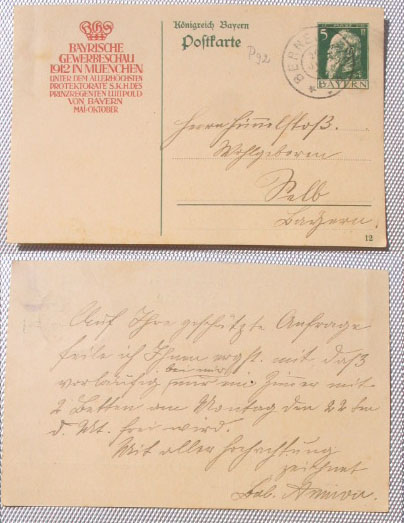 BAYRISCHE
GEWERBESCHAU
1912 IN MUENCHEN
UNTER DEM ALLERHÖCHSTEN
PROTEKTORATE S.K.H. DES
PRINZREGENTEN LUITPOLD
VON BAYERN
MAI-OKTOBER
Königreich Bayern
Postkarte
P92
5
BAYERN
BERNE
Herrn Himmelstoß.
Wohlgeboren
Selb
Bayern.
12
Auf Ihre geschützte Anfrage
teile ich Ihnen ergst. mit daß
bei mir
vorläufig nur ein Zimmer mit
2 Betten am Montag den 22ten
d. Mt. frei wird.
Mit aller Hochachtung
zeichnet